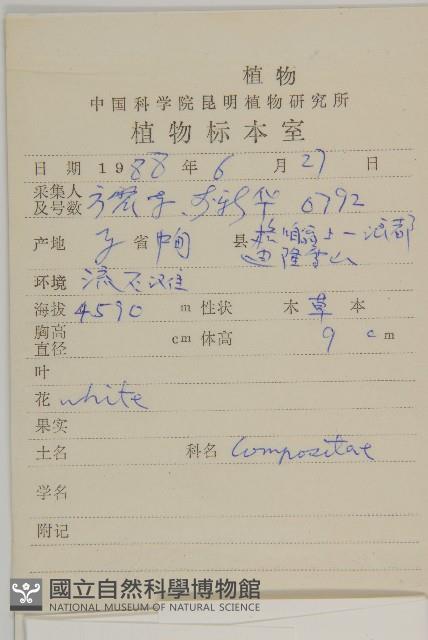 植物
中国科学院昆明植物研究所
植物标本室
日 期 1988 年 6 月 27 日
采集人
及号数 方震东、李新华 0792
产地 省 中甸 县 格咱 上一浪都
迪隆雪山
环境 流石滩
海拔 4590 m 性状 木 草 本
胸高
直径 cm 体高 9 cm
叶
花 white
果实
土名 科名 Compositae
学名
附记
國立自然科學博物館
NATIONAL MUSEUM OF NATURAL SCIENCE